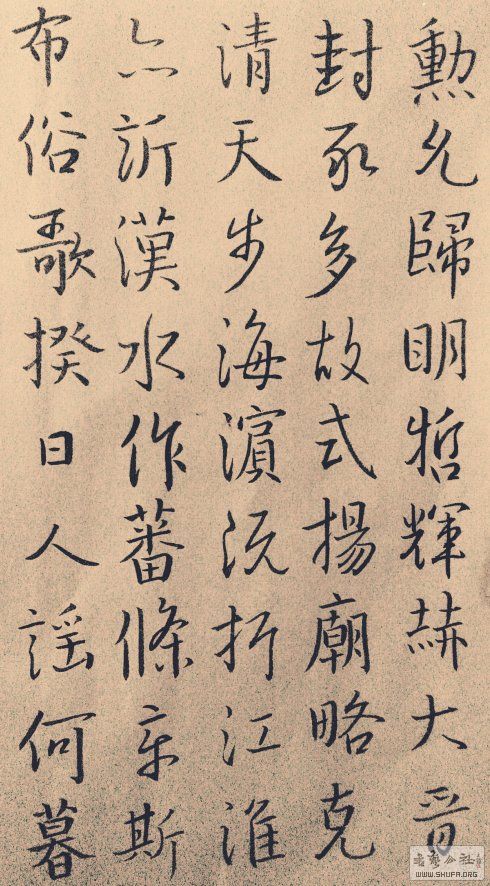 勳允歸明哲輝赫大晉
封豕多故式揚廟略克
清天步海濱既折江淮
亦訢漢水作蕃條章斯
布俗歌揆日人謠何暮
WWW.SHUFA.ORG